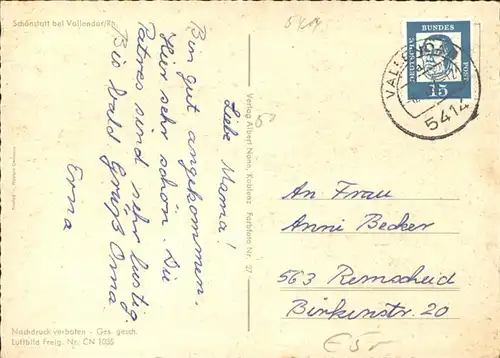 Schönstatt bei Vallendar/Rh.
Liebe Mama!
Bin gut angekommen.
Hier sehr schön. Die
Patres sind sehr lustig.
Bis bald Grüß Oma
Erna
Nachdruck verboten - Ges. gesch.
Luftbild Freig. Nr. CN 1035
Verlag Albert Nonn, Koblenz Farbfoto Nr. 27
BUNDES
POST
15
5414
An Frau
Anni Becker
563 Remscheid
Birkenstr. 20